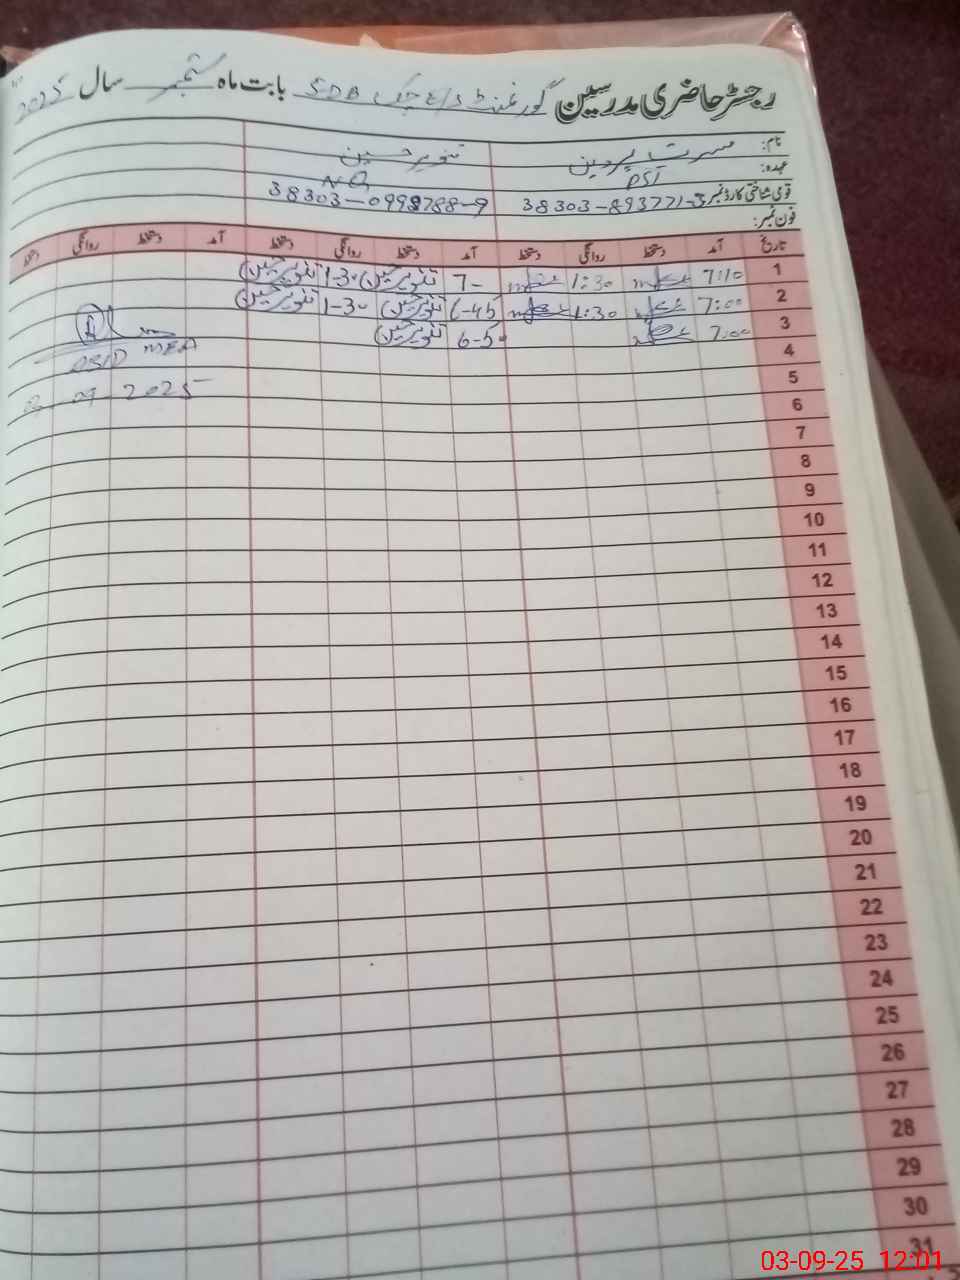 رجسٹر حاضری مدرسین گورنمنٹ بابت ماہ ستمبر سال 2025
نام: مسرت پروین تنویر حسین
عہدہ: PST N.Q
قومی شناختی کارڈ نمبر 38303-893771-3 38303-0998788-9
فون نمبر:
تاریخ آمد دستخط روانگی دستخط آمد دستخط روانگی دستخط آمد دستخط روانگی دستخط
1 7:10 1:30 7- تنویر حسین 1-30 تنویر حسین
2 7:00 1:30 6-45 تنویر حسین 1-30 تنویر حسین
3 7:00 6-50 تنویر حسین
4 MEA
5 09 2025
6
7
8
9
10
11
12
13
14
15
16
17
18
19
20
21
22
23
24
25
26
27
28
29
30
31
03-09-25 12:01